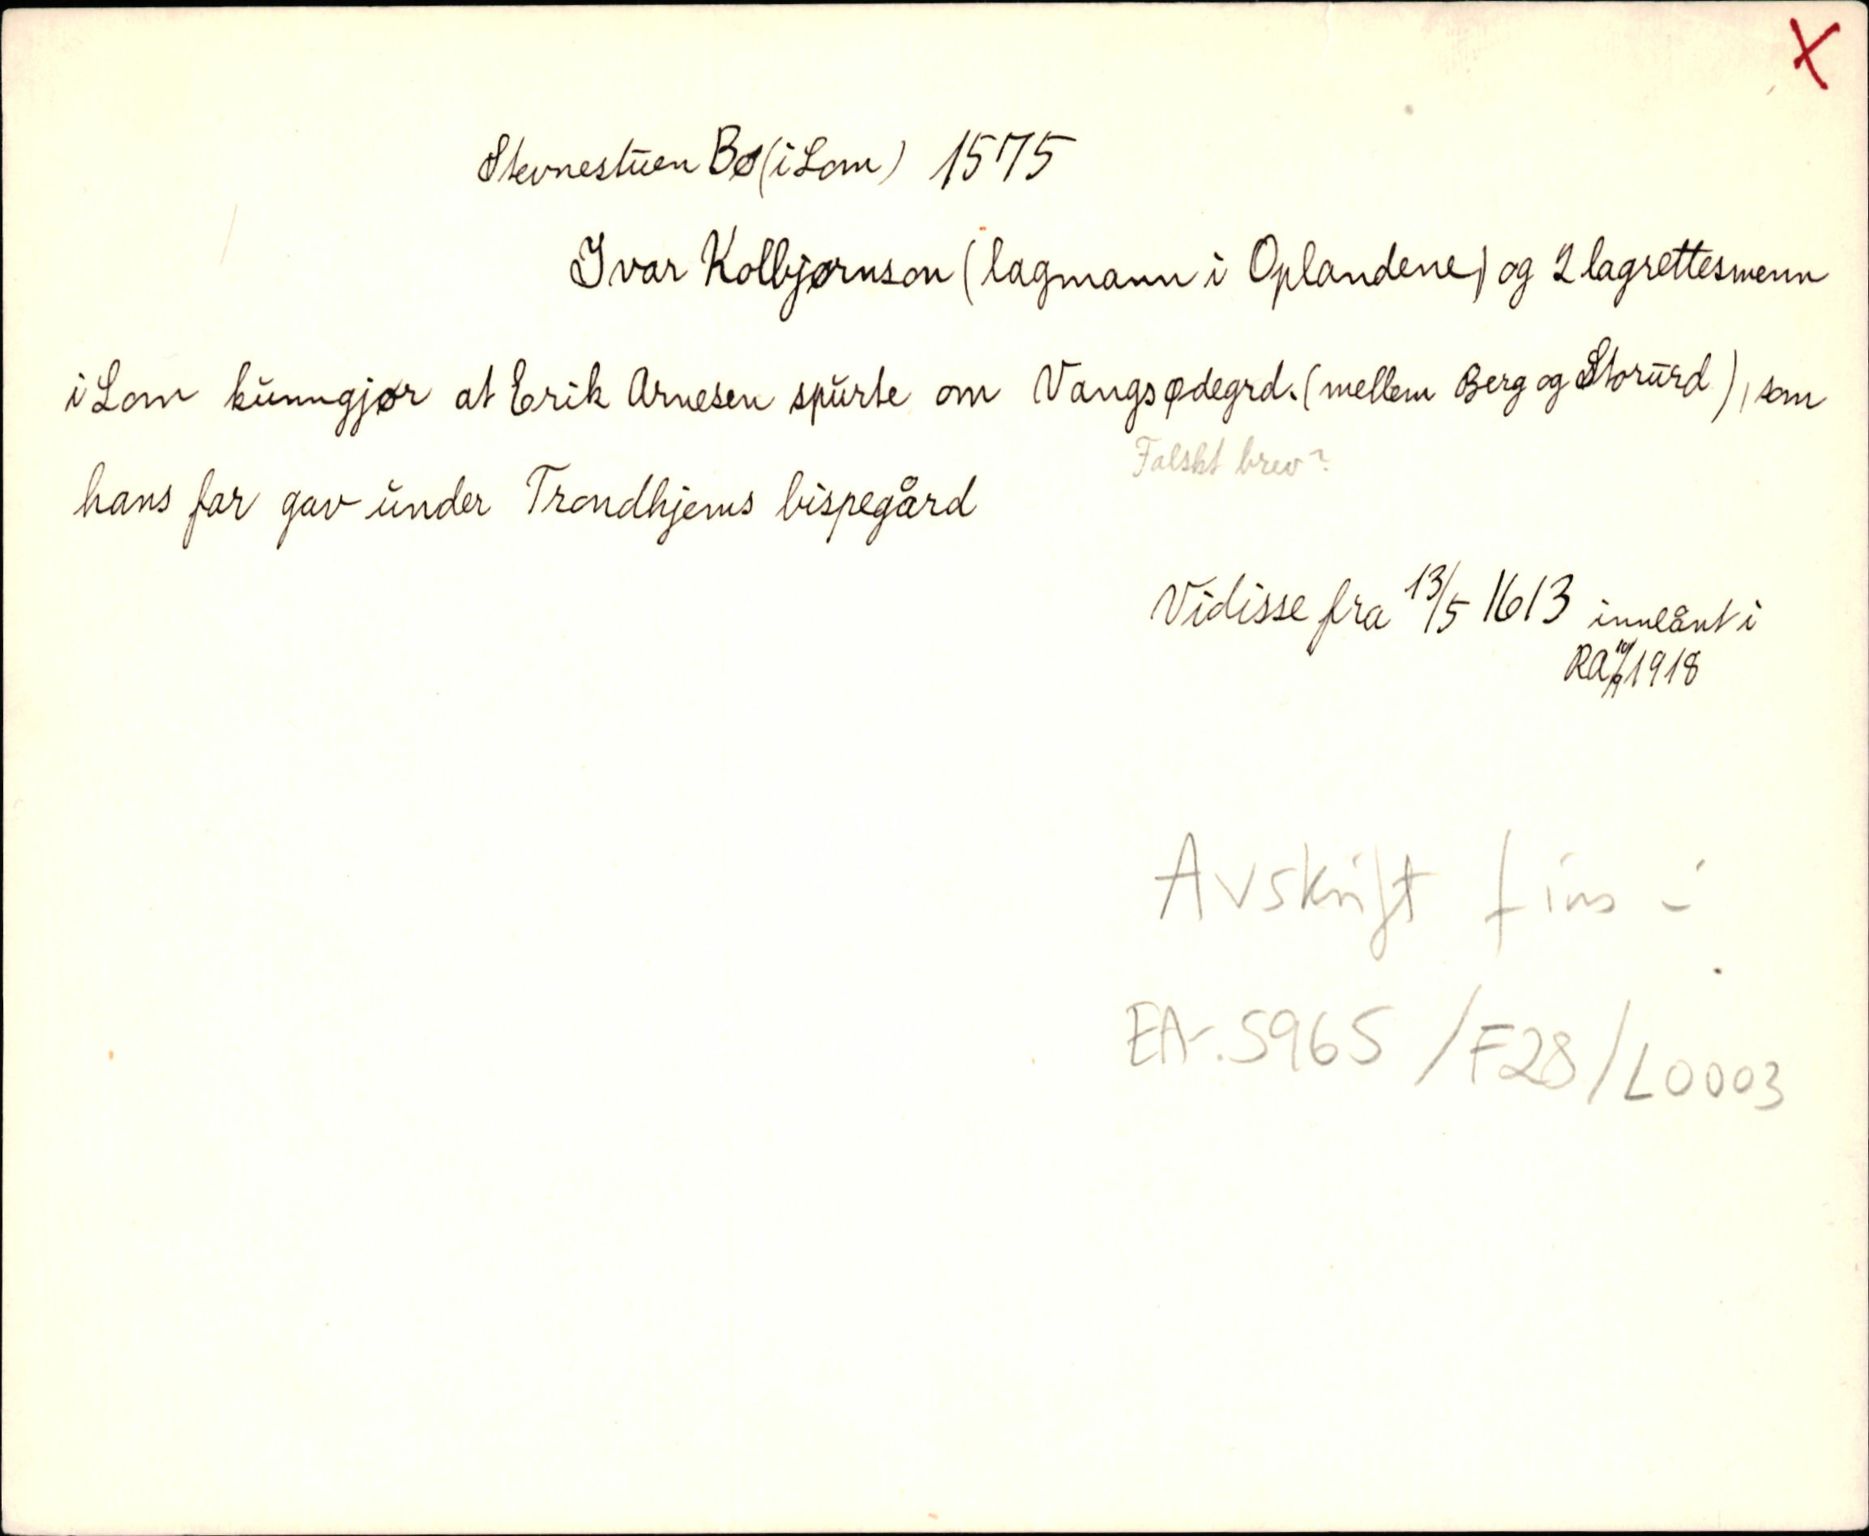 X
Stevnestuen Bø (i Lom) 1575
Ivar Kolbjørnson (lagmann i Oplandene) og 2 lagrettesmenn
i Lom kunngjør at Erik Arnesen spurte om Vangsødegrd. (mellem Berg og Storurd), som
Falskt brev?
hans far gav under Trondhjems bispegård
Vidisse fra 13/5 1613 innlånt i
RA 1918
Avskrift fins i
EA-.5965 /F28/L0003